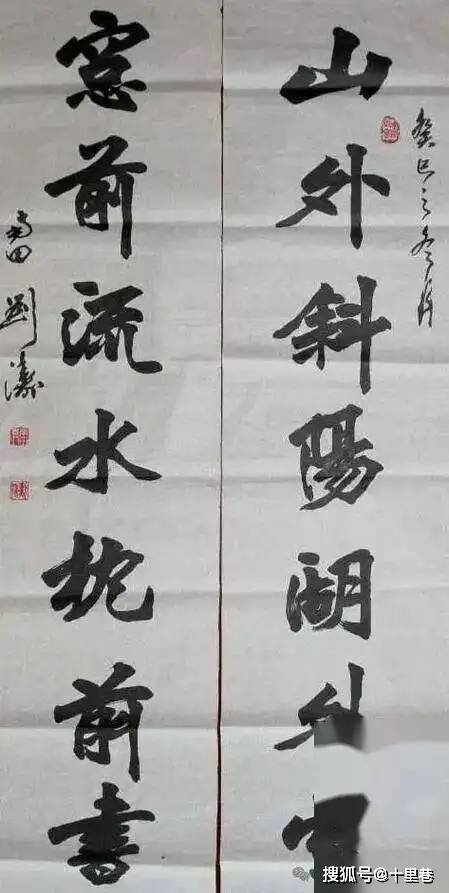 癸巳之冬月
山外斜陽湖外
窓前流水枕前書
劉
搜狐号@十里巷